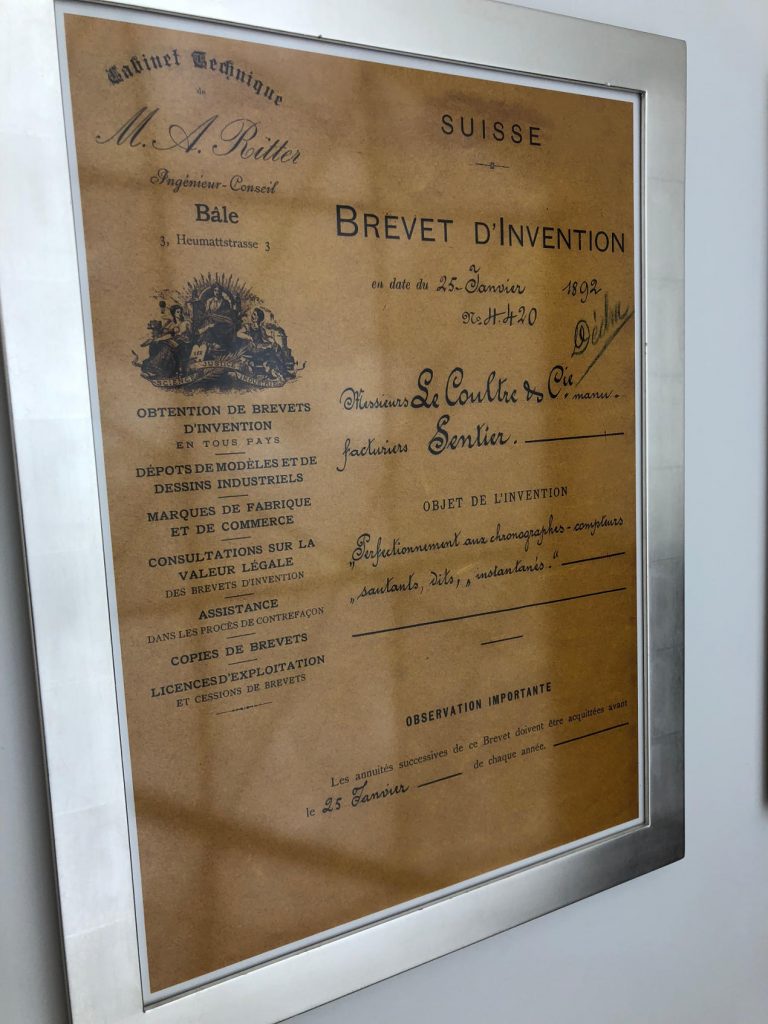 Cabinet Technique
de
M. A. Ritter
Ingénieur-Conseil
Bâle
3, Heumattstrasse 3
SCIENCE JUSTICE INDUSTRIE
OBTENTION DE BREVETS
D'INVENTION
EN TOUS PAYS
DÉPOTS DE MODÈLES ET DE
DESSINS INDUSTRIELS
MARQUES DE FABRIQUE
ET DE COMMERCE
CONSULTATIONS SUR LA
VALEUR LÉGALE
DES BREVETS D'INVENTION
ASSISTANCE
DANS LES PROCÈS DE CONTREFAÇON
COPIES DE BREVETS
LICENCES D'EXPLOITATION
ET CESSIONS DE BREVETS
SUISSE
BREVET D'INVENTION
en date du 25 Janvier 1892
No. 4.420
Messieurs Le Coultre & Cie. manu-
facturiers Sentier.
OBJET DE L'INVENTION
„Perfectionnement aux chronographes-compteurs
„sautants, dits, „instantanés."
OBSERVATION IMPORTANTE
Les annuités successives de ce Brevet doivent être acquittées avant
le 25 Janvier de chaque année.